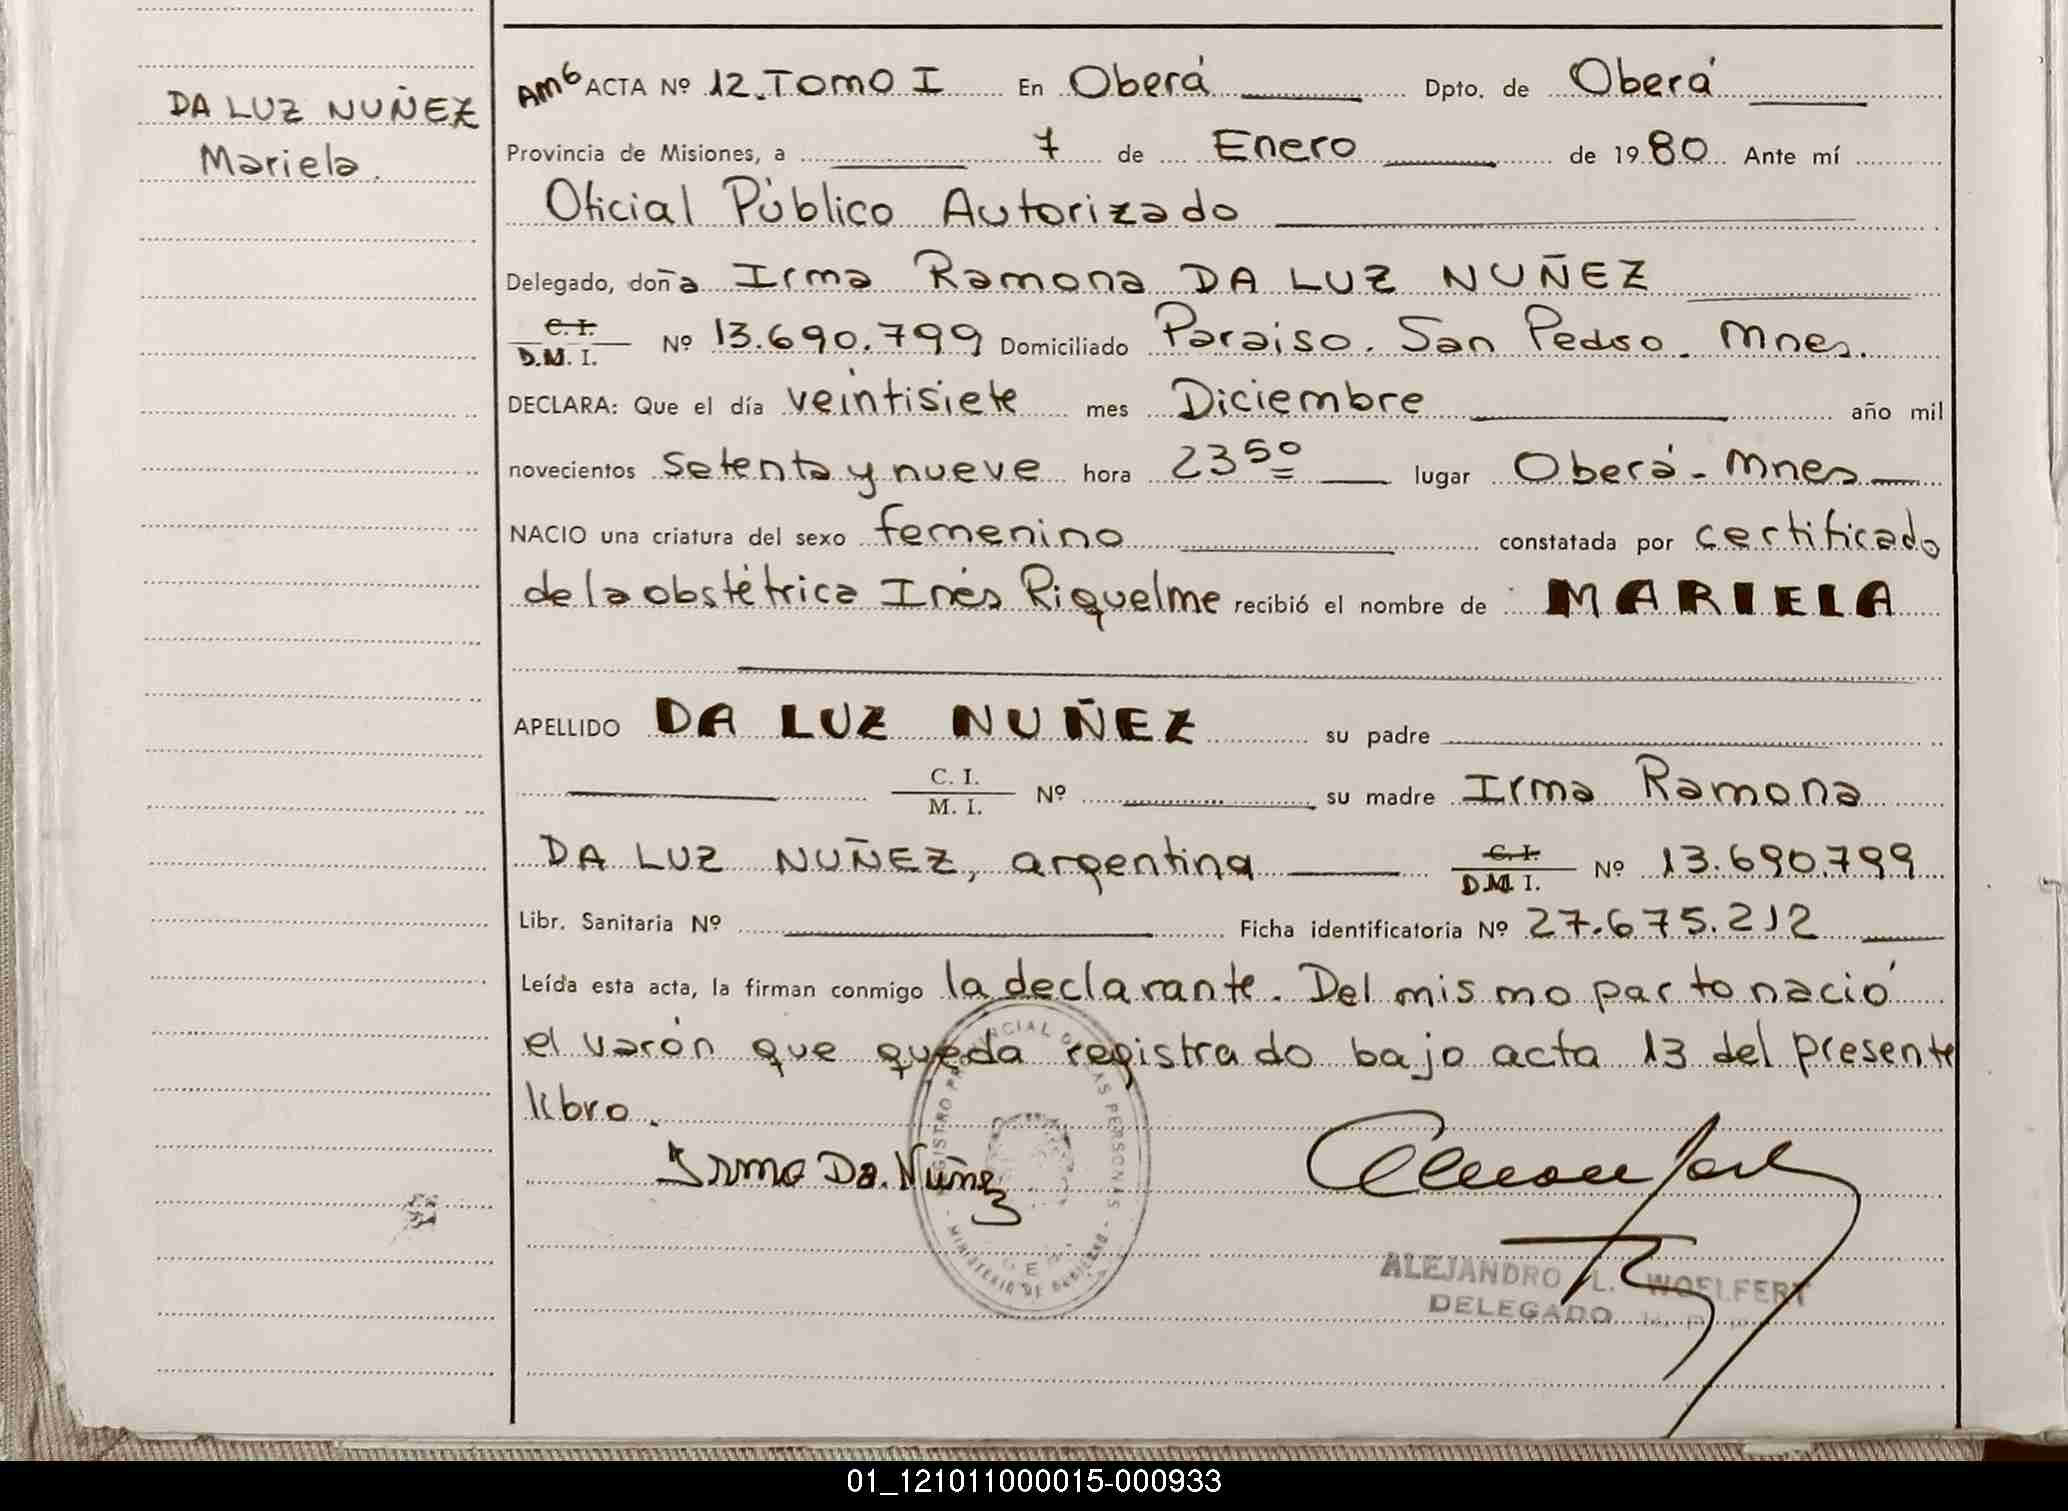 DA LUZ NUÑEZ
Mariela.
Am6 ACTA Nº 12. Tomo I En Oberá Dpto. de Oberá
Provincia de Misiones, a 7 de Enero de 1980 Ante mí
Oficial Público Autorizado
Delegado, doña Irma Ramona DA LUZ NUÑEZ
C. I.
D.M. I. Nº 13.690.799 Domiciliado Paraiso. San Pedro. Mnes.
DECLARA: Que el día veintisiete mes Diciembre año mil
novecientos setenta y nueve hora 23 50 lugar Oberá - Mnes
NACIO una criatura del sexo femenino constatada por certificado
de la obstétrica Inés Riquelme recibió el nombre de MARIELA
APELLIDO DA LUZ NUÑEZ su padre
C. I.
M. I. Nº su madre Irma Ramona
DA LUZ NUÑEZ, argentina C. I.
D.M. I. Nº 13.690.799
Libr. Sanitaria Nº Ficha identificatoria Nº 27.675.212
Leída esta acta, la firman conmigo la declarante. Del mismo parto nació
el varón que queda registrado bajo acta 13 del presente
libro.
Irma Da. Nuñez
REGISTRO PROVINCIAL DE LAS PERSONAS
MINISTERIO DE GOBIERNO
ALEJANDRO L. WOELFERT
DELEGADO
01_121011000015-000933